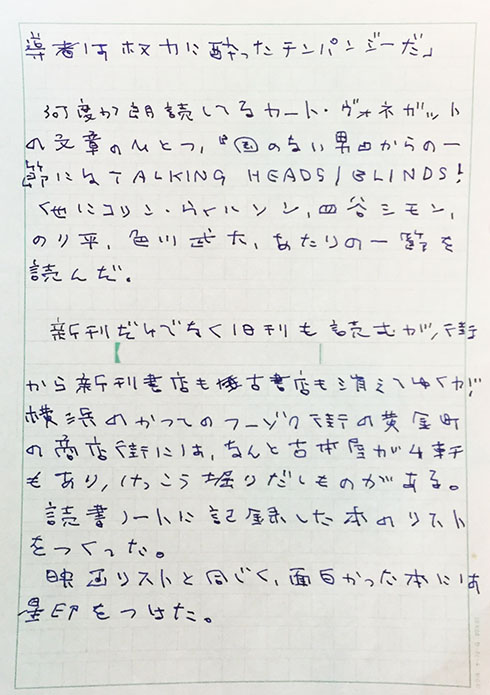 導者は权力に酔ったチンパンジーだ」
何度か朗読してるカート・ヴォネガット
の文章のひとつ、『国のない男』からの一
節にはTALKING HEADS/BLINDS!
く他にコリン・ウィルソン,四谷シモン,
のり平,色川武大,あたりの一節を
読んだ。
新刊だけでなく旧刊も読むが,街
から新刊書店も古書店も消えてゆくが,
横浜のかつてのフーゾク街の黄金町
の商店街には,なんと古本屋が4軒
もあり,けっこう堀りだしものがある。
読書ノートに記録した本のリスト
をつくった。
映画リストと同じく,面白かった本には
星印をつけた。